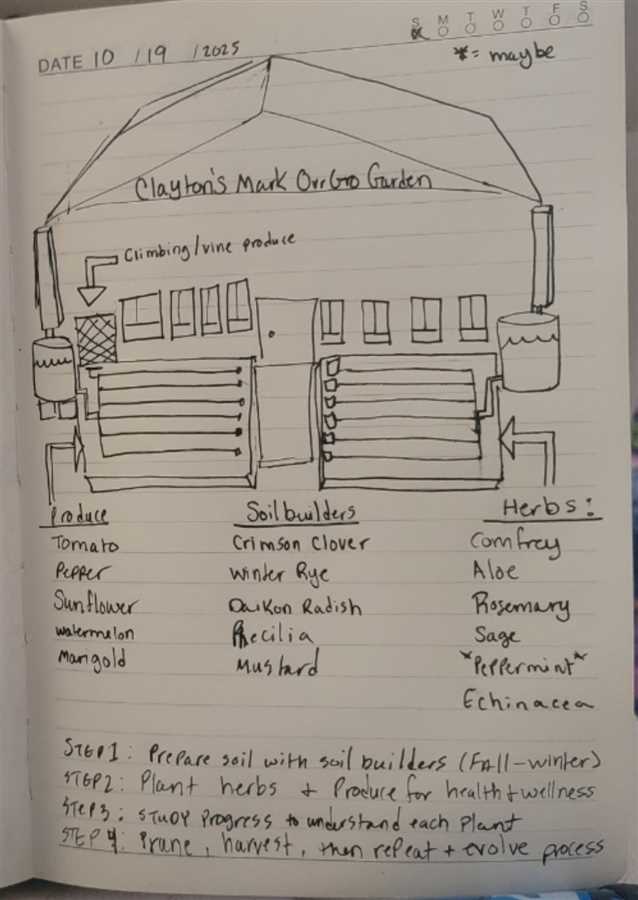 S M T W T F S
DATE 10 / 19 / 2025
*= maybe
Clayton's Mark Garden
Climbing/vine produce
Produce
Tomato
Pepper
Sunflower
watermelon
Marigold
Soil builders
Crimson Clover
Winter Rye
Daikon Radish
Phecilia
Mustard
Herbs:
Comfrey
Aloe
Rosemary
Sage
*Peppermint*
Echinacea
STEP 1: Prepare soil with soil builders (Fall-winter)
STEP 2: Plant herbs + Produce for health + wellness
STEP 3: STUDY Progress to understand each Plant
STEP 4: Prune, harvest, then repeat + evolve process